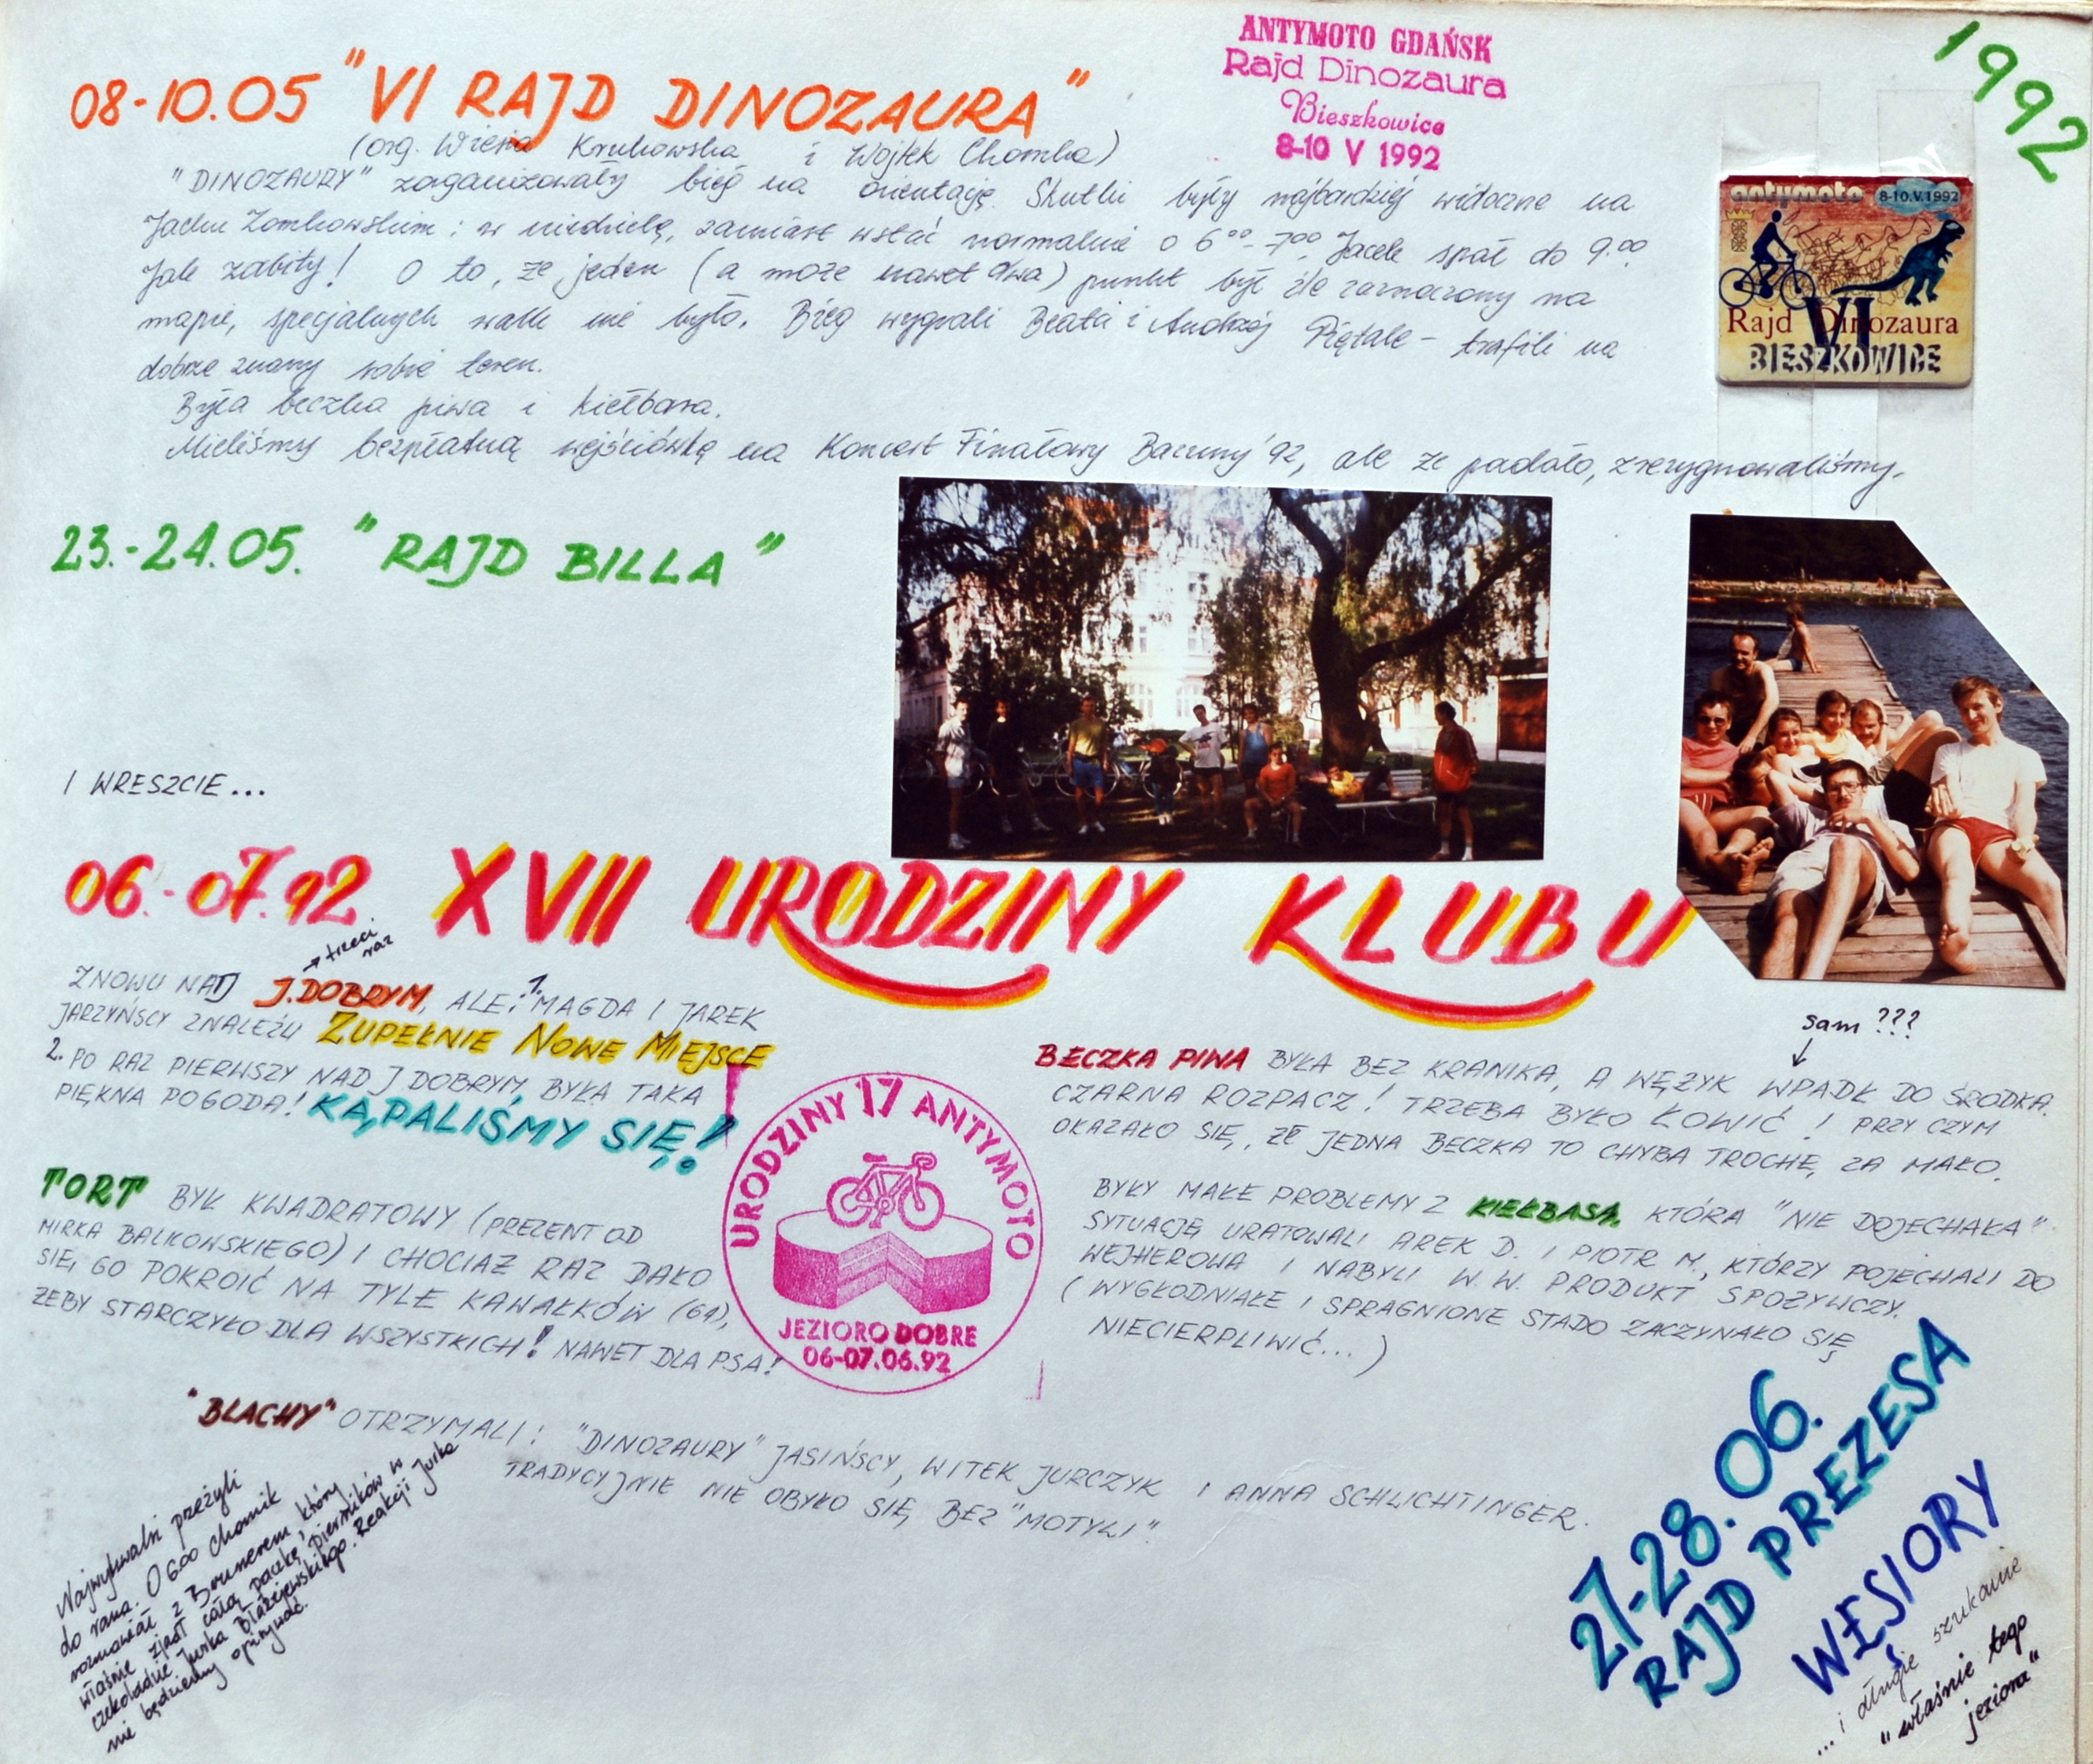 1992
08-10.05 "VI RAJD DINOZAURA"
(org. Wiesia Krukowska i Wojtek Chomka)
ANTYMOTO GDAŃSK
Rajd Dinozaura
Bieszkowice
8-10 V 1992
antymoto 8-10.V.1992
VI
Rajd Dinozaura
BIESZKOWICE
"DINOZAURY" zorganizowały bieg na orientację. Skutki były najbardziej widoczne na
Jacku Zomkowskim: w niedzielę, zamiast wstać normalnie o 6⁰⁰-7⁰⁰, Jacek spał do 9.⁰⁰
jak zabity! O to, że jeden (a może nawet dwa) punkt był źle zaznaczony na
mapie, specjalnych walk nie było. Bieg wygrali Beata i Andrzej Piętale - trafili na
dobrze znany sobie teren.
Była beczka piwa i kiełbasa.
Mieliśmy bezpłatną wejściówkę na Koncert Finałowy Bazuny '92, ale że padało, zrezygnowaliśmy.
23.-24.05. "RAJD BILLA"
I WRESZCIE...
06.-07.92 XVII URODZINY KLUBU
→ trzeci raz
ZNOWU NAD J.DOBRYM, ALE: 1. MAGDA I JAREK
JARZYŃSCY ZNALEŹLI ZUPEŁNIE NOWE MIEJSCE
2. PO RAZ PIERWSZY NAD J DOBRYM, BYŁA TAKA
PIĘKNA POGODA! KĄPALIŚMY SIĘ!
TORT BYŁ KWADRATOWY (PREZENT OD
MIRKA BALKOWSKIEGO) I CHOCIAŻ RAZ DAŁO
SIĘ GO POKROIĆ NA TYLE KAWAŁKÓW (61),
ŻEBY STARCZYŁO DLA WSZYSTKICH! NAWET DLA PSA!
URODZINY 17 ANTYMOTO
JEZIORO DOBRE
06-07.06.92
sam ???
BECZKA PIWA BYŁA BEZ KRANIKA, A WĘŻYK WPADŁ DO ŚRODKA.
CZARNA ROZPACZ! TRZEBA BYŁO ŁOWIĆ! PRZY CZYM
OKAZAŁO SIĘ, ŻE JEDNA BECZKA TO CHYBA TROCHĘ ZA MAŁO.
BYŁY MAŁE PROBLEMY Z KIEŁBASĄ, KTÓRA "NIE DOJECHAŁA".
SYTUACJĘ URATOWALI AREK D. I PIOTR M., KTÓRZY POJECHALI DO
WEJHEROWA I NABYLI W.W. PRODUKT SPOŻYWCZY.
(WYGŁODNIAŁE I SPRAGNIONE STADO ZACZYNAŁO SIĘ
NIECIERPLIWIĆ...)
"BLACHY" OTRZYMALI: "DINOZAURY" JASIŃSCY, WITEK JURCZYK I ANNA SCHLICHTINGER.
TRADYCYJNIE NIE OBYŁO SIĘ BEZ "MOTYLI"
Najwytrwalsi przeżyli
do rana. O 6⁰⁰ Chomik
rozmawiał z Brunerem, który
właśnie zjadł całą paczkę pierników w
czekoladzie Jurka Błażejewskiego. Reakcji Jurka
nie będziemy opisywać.
27-28.06.
RAJD PREZESA
WĘSIORY
... i długie szukanie
"właśnie tego
jeziora"